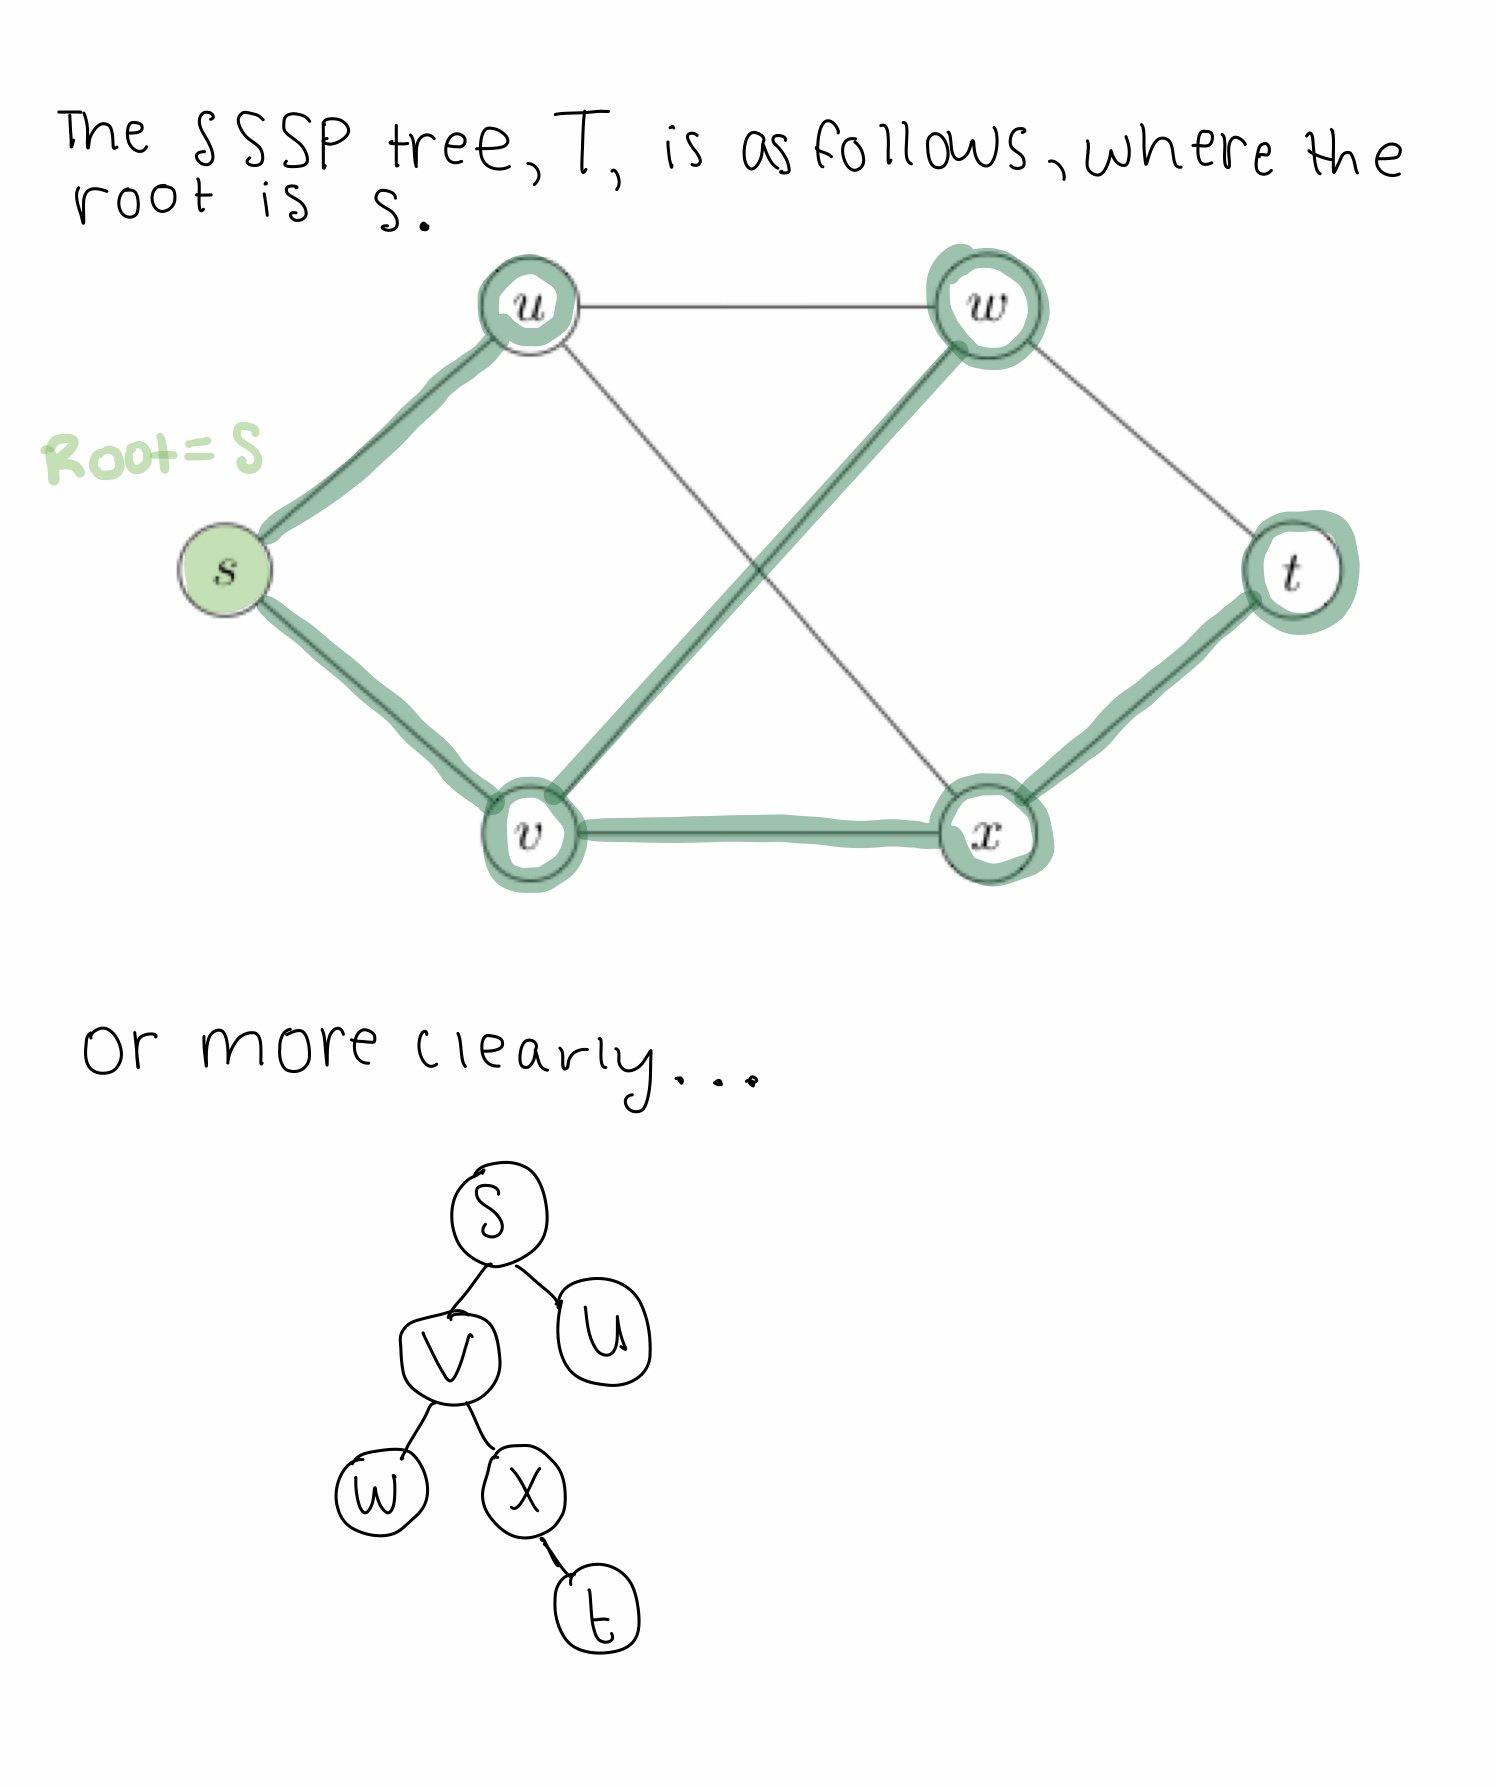 The SSSP tree, T, is as follows, where the
root is s.
u
w
Root = S
s
t
v
x
Or more clearly...
S
V
U
W
X
t